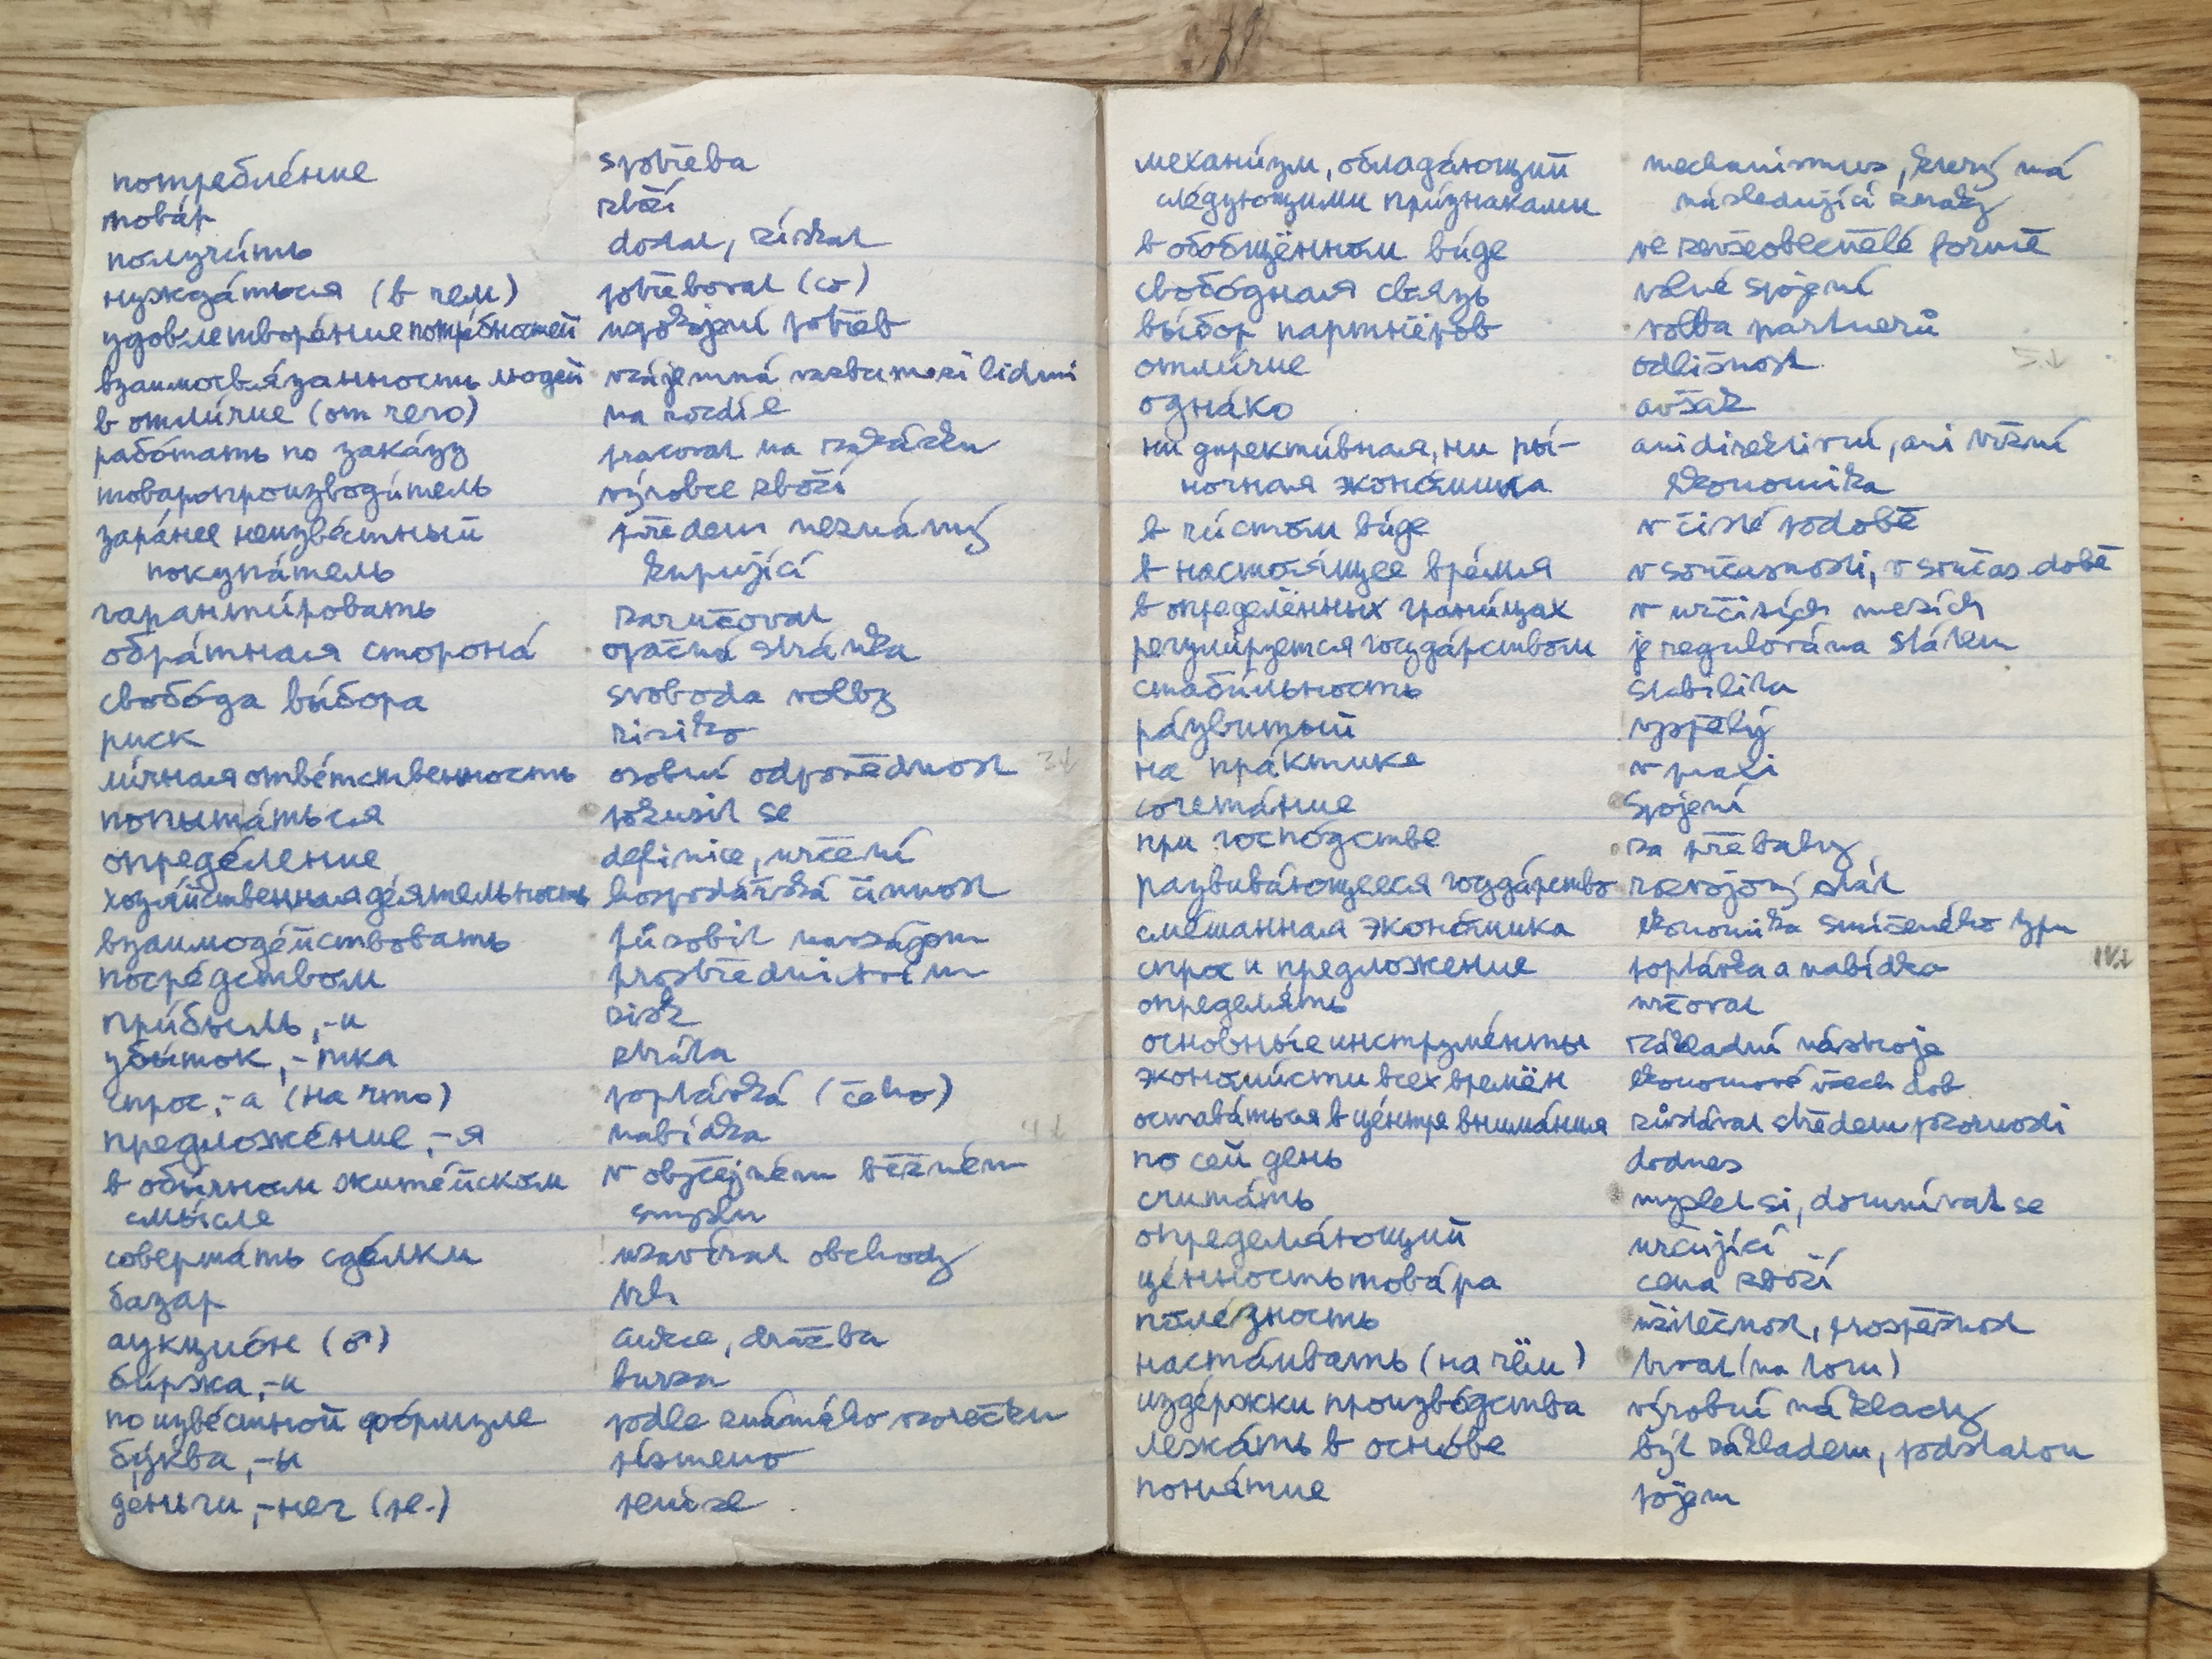 потребле́ние spotřeba
това́р zboží
получи́ть dostat, získat
нужда́ться (в чем) potřebovat (co)
удовлетворе́ние потре́бностей uspokojení potřeb
взаимосвя́занность людей vzájemná vazba mezi lidmi
в отли́чие (от чего) na rozdíl
рабо́тать по зака́зу pracovat na zakázku
товаропроизводи́тель výrobce zboží
зара́нее неизве́стный předem neznámý
покупа́тель kupující
гаранти́ровать zaručovat
обра́тная сторона́ opačná stránka
свобо́да вы́бора svoboda volby
риск riziko
ли́чная отве́тственность osobní odpovědnost 3↓
попыта́ться pokusit se
определе́ние definice, určení
хозя́йственная де́ятельность hospodářská činnost
взаимоде́йствовать působit navzájem
посре́дством prostřednictvím
при́быль, -и zisk
убы́ток, -тка ztráta
спрос, -а (на что) poptávka (čeho)
предложе́ние, -я nabídka 4↓
в обы́чном жите́йском v obyčejném běžném
смы́сле smyslu
соверша́ть сде́лки uzavírat obchody
база́р trh
аукцио́н (♂) aukce, dražba
би́ржа, -и burza
по изве́стной фо́рмуле podle známého vzorečku
бу́ква, -ы písmeno
де́ньги, -нег (pl.) peníze
механи́зм, облада́ющий mechanismus, který má
сле́дующими при́знаками následující znaky
в обобщённом ви́де ve zevšeobecnělé formě
свобо́дная связь volné spojení
вы́бор партнёров volba partnerů
отли́чие odlišnost 5.↓
одна́ко avšak
ни директи́вная, ни ры́- ani direktivní, ani tržní
ночная эконо́мика ekonomika
в чи́стом ви́де v čisté podobě
в настоя́щее вре́мя v současnosti, v součas. době
в определённых грани́цах v určitých mezích
регули́руется госуда́рством je regulována státem
стаби́льность stabilita
ра́звитый vyspělý
на пра́ктике v praxi
сочета́ние spojení
при госпо́дстве za převahy
развива́ющееся госуда́рство rozvojový stát
сме́шанная эконо́мика ekonomika smíšeného typu
спрос и предложение poptávka a nabídka IV.↓
определя́ть určovat
основны́е инструме́нты základní nástroje
экономи́сты всех времён ekonomové všech dob
остава́ться в це́нтре внима́ния zůstávat středem pozornosti
по сей день dodnes
счита́ть myslet si, domnívat se
определя́ющий určující
це́нность това́ра cena zboží
поле́зность užitečnost, prospěšnost
наста́ивать (на чём) trvat (na tom)
изде́ржки произво́дства výrobní náklady
лежа́ть в осно́ве být základem, podstatou
поня́тие pojem